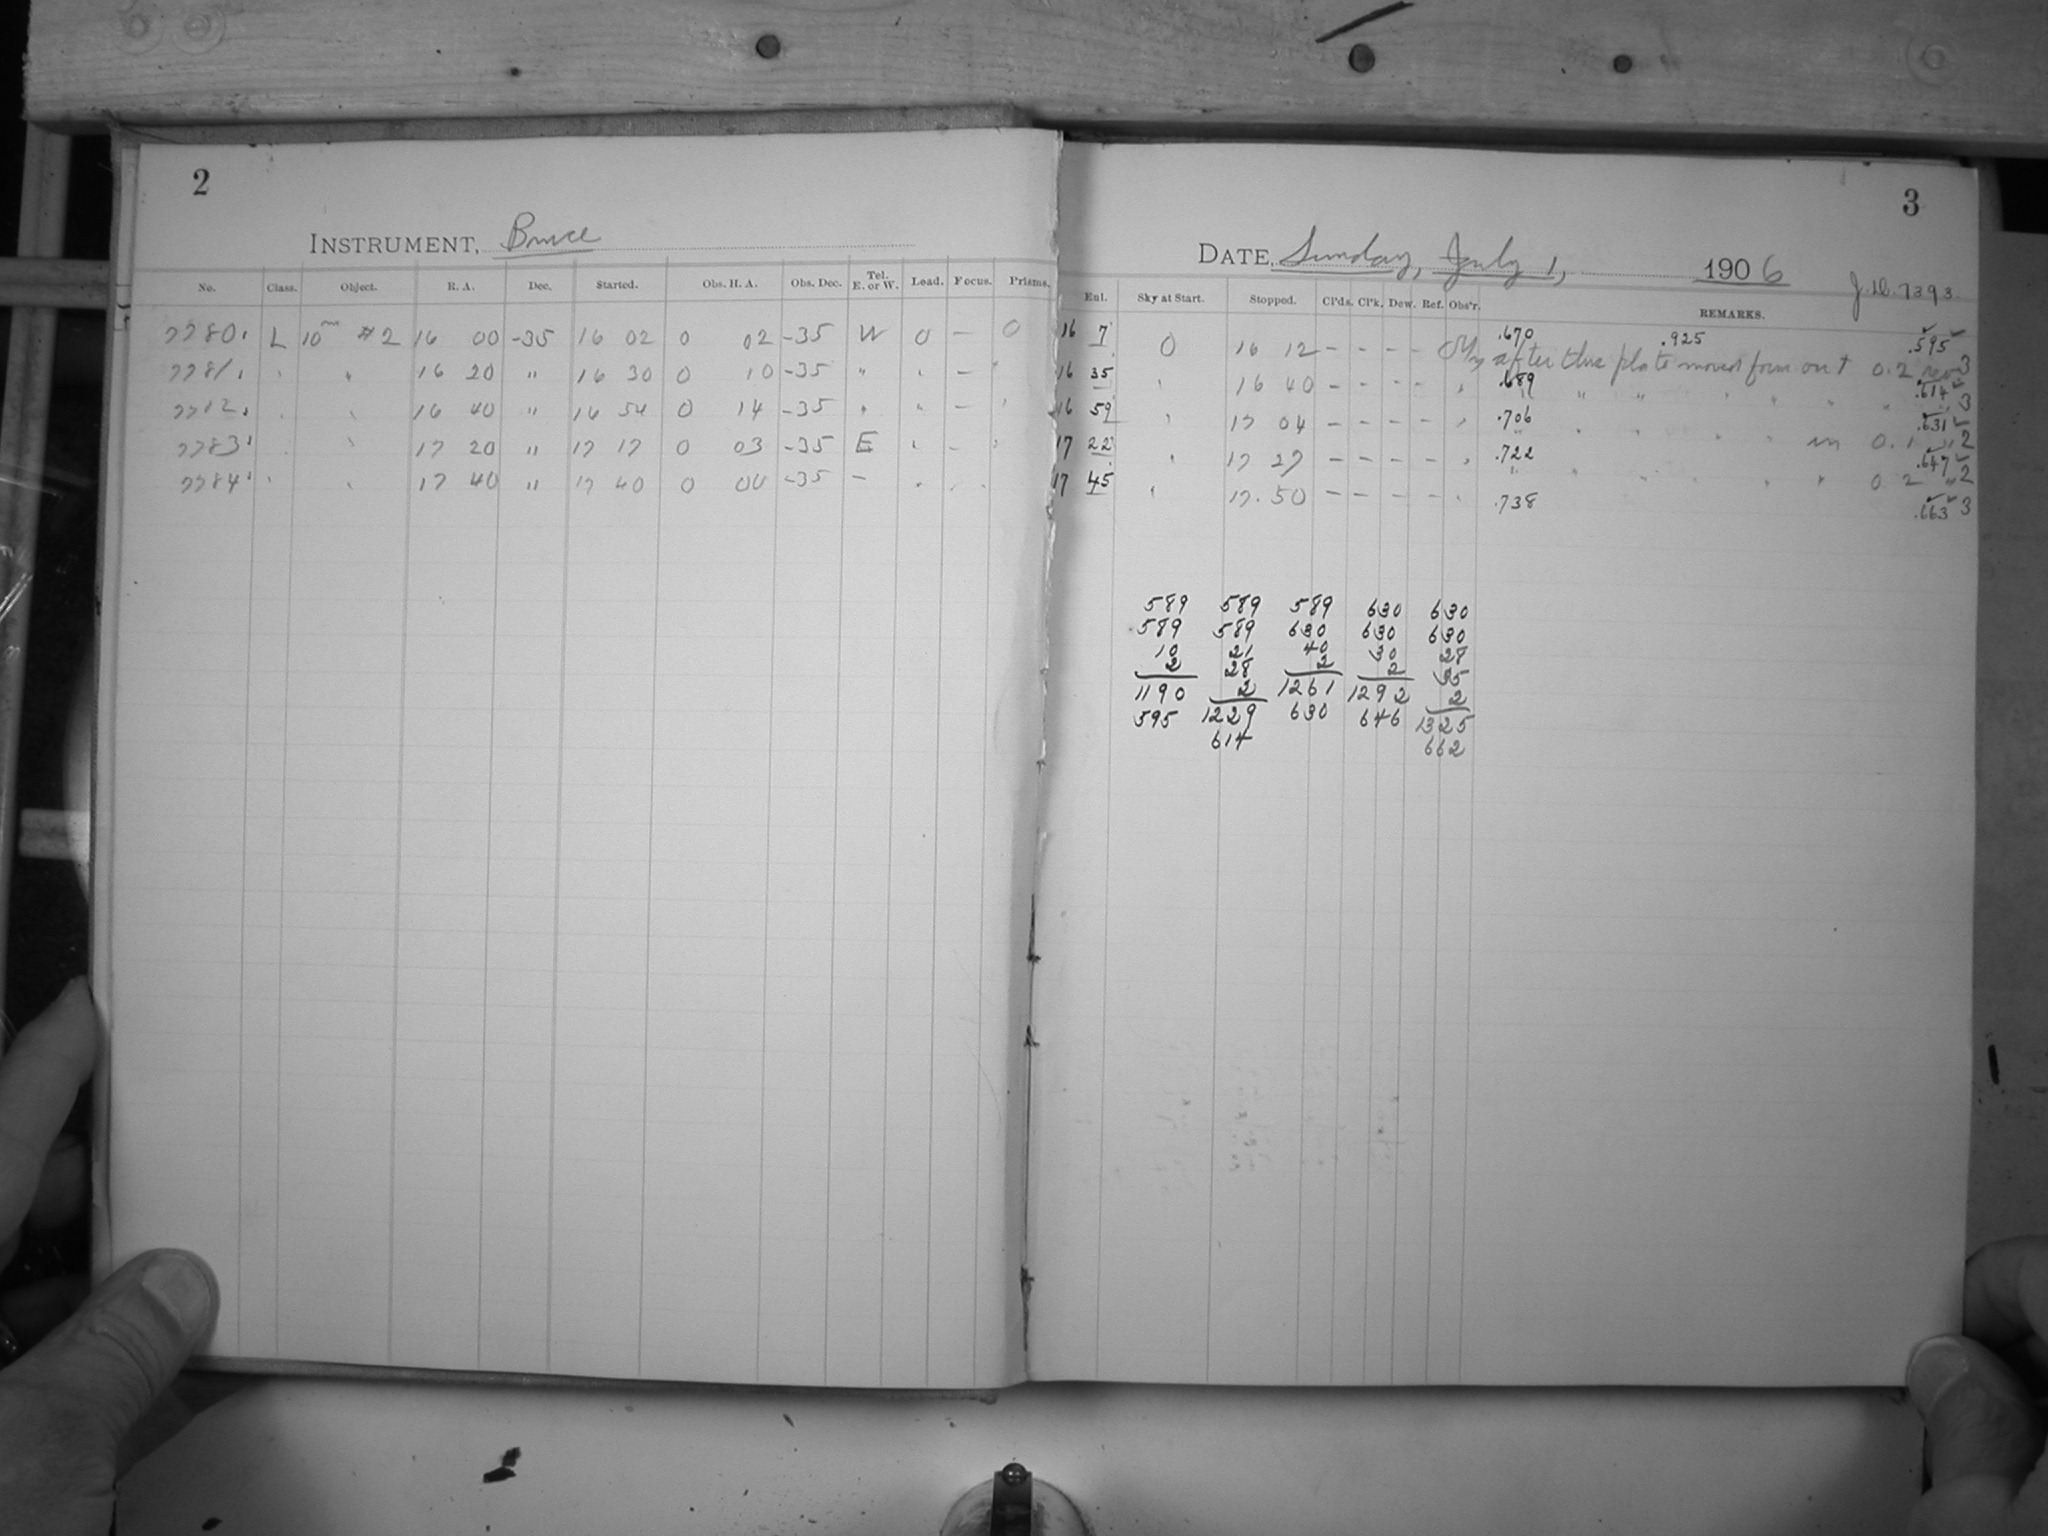 2
INSTRUMENT, Bruce
No. Class. Object. R. A. Dec. Started. Obs. H. A. Obs. Dec. Tel. E. or W. Load. Focus. Prisms.
7780. L 10m #2 16 00 -35 16 02 0 02 -35 W 0 — 0
7781. " " 16 20 " 16 30 0 10 -35 " " — "
7782. " " 16 40 " 16 54 0 14 -35 " " — "
7783. " 17 20 " 17 17 0 03 -35 E " — "
7784. " " 17 40 " 17 40 0 00 -35 — " " "
3
DATE, Sunday, July 1, 1906
J.D. 7393
Enl. Sky at Start. Stopped. Cl'ds. Cl'k. Dew. Ref. Obs'r. REMARKS.
16 7 0 16 12 — — — — .670 .925 .595
after this plate moved 0.2 3
16 35 " 16 40 — — — — " .689 .614 3
16 59 " 17 04 — — — — " .706 in 0.1 " .631 2
17 22 " 17 27 — — — — " .722 0.2 " .647 2
17 45 " 17.50 — — — — " .738 .663 3
589 589 589 630 630
589 589 630 630 630
10 21 40 30 28
2 28 2 2 35
1190 2 1261 1292 2
595 1229 630 646 1325
614 662